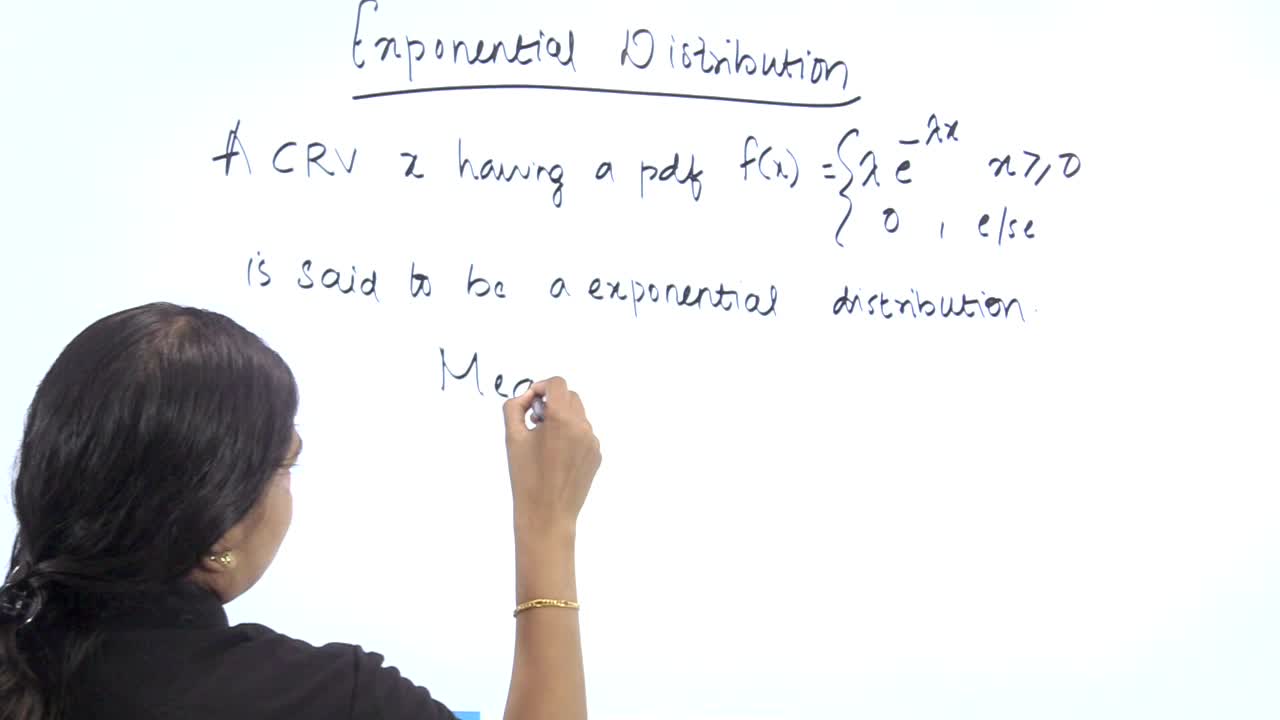 Exponential Distribution
A CRV x having a pdf f(x) = { λ e^{-λx} x ≥ 0
0 , else
is said to be a exponential distribution.
Mea